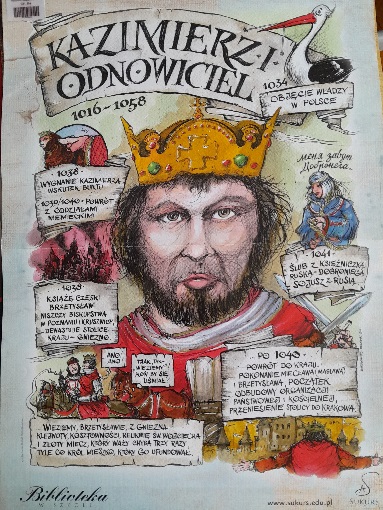 KAZIMIERZ I
ODNOWICIEL
1016-1058
1034
OBJĘCIE WŁADZY
W POLSCE
1038-
WYGNANIE KAZIMIERZA
WSKUTEK BUNTU
1039/1040 - POWRÓT
Z ODDZIAŁAMI
NIEMIECKIMI
меня зовут
Добронега.
1041-
ŚLUB Z KSIĘŻNICZKĄ
RUSKĄ - DOBRONIEGĄ
SOJUSZ Z RUSIĄ
1038-
KSIĄŻĘ CZESKI
BRZETYSŁAW
NISZCZY BISKUPSTWA
W POZNANIU I KRUSZWICY,
DEWASTUJE STOLICĘ
KRAJU - GNIEZNO.
ANO,
ANO!
TAAK,
WIEZIEMY!
KOŃ BY SIĘ
UŚMIAŁ!
- PO 1046-
POWRÓT DO KRAJU.
POKONANIE MIECŁAWA I
BRZETYSŁAWA, POCZĄTEK
ODBUDOWY ORGANIZACJI
PAŃSTWOWEJ I KOŚCIELNEJ,
PRZENIESIENIE STOLICY DO KRAKOWA.
WIEZIEMY, BRZETYSŁAWIE, Z GNIEZNA
KLEJNOTY, KOSZTOWNOŚCI, RELIKWIE ŚW. WOJCIECHA
I ZŁOTY MIECZ, KTÓRY WAŻY CHYBA TRZY RAZY
TYLE CO KRÓL MIESZKO, KTÓRY GO UFUNDOWAŁ.
Biblioteka
W SZKOLE
www.sukurs.edu.pl
SUKURS